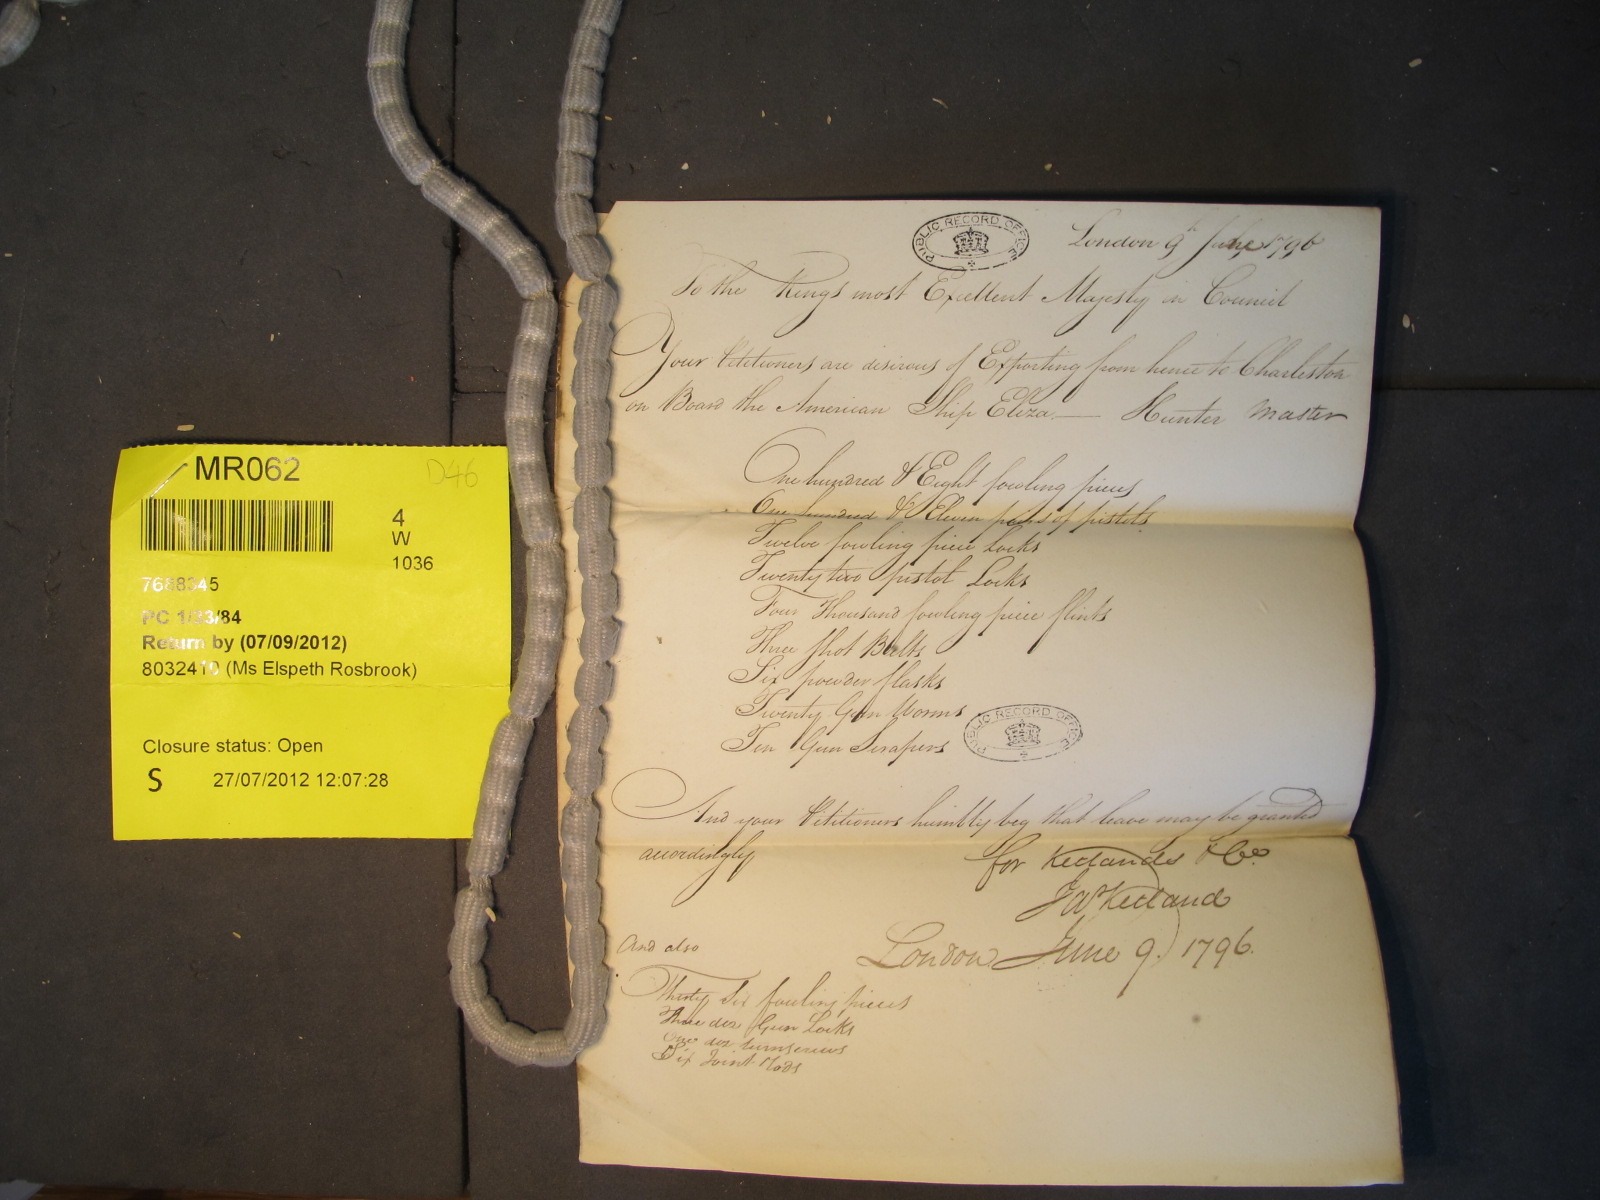 MR062
D46
4
W
1036
7688345
PC 1/33/84
Return by (07/09/2012)
8032410 (Ms Elspeth Rosbrook)
Closure status: Open
S 27/07/2012 12:07:28
PUBLIC RECORD OFFICE
London 9th June 1796
To the Kings most Excellent Majesty in Council
Your Petitioners are desirous of Exporting from hence to Charleston
on Board the American Ship Eliza — Hunter Master
One hundred & Eight fowling pieces
One hundred & Eleven pairs of pistols
Twelve fowling piece Locks
Twenty two pistol Locks
Four Thousand fowling piece flints
Three Shot Belts
Six powder flasks
Twenty Gun Worms
Ten Gun Scrapers
PUBLIC RECORD OFFICE
And your Petitioners humbly beg that leave may be granted
accordingly
for Ketlands & Co
Ketland
London June 9. 1796.
And also
Thirty Six fowling pieces
Three doz Gun Locks
One doz turnscrews
Six Joint Rods